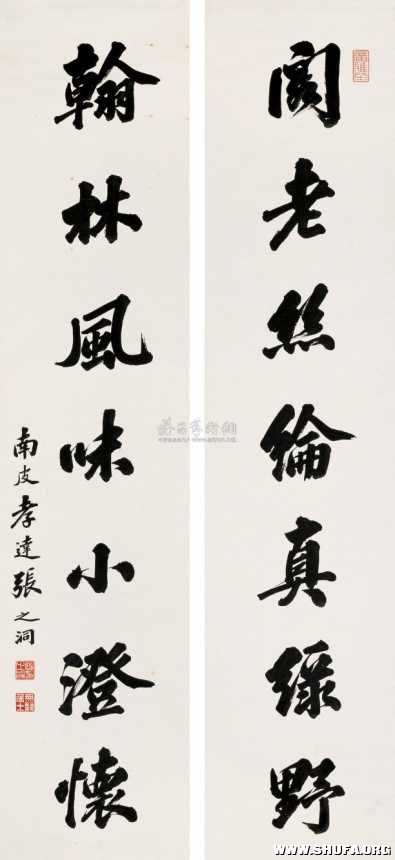 閣老絲綸真綠野
翰林風味小澄懷
南皮孝達張之洞
WWW.SHUFA.ORG